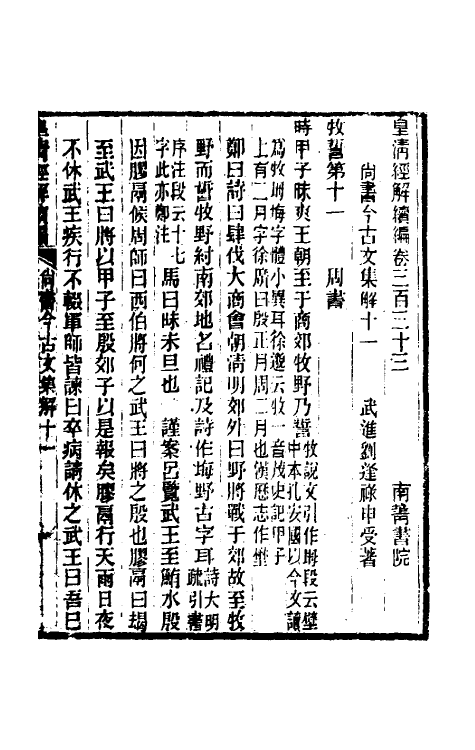 皇清經解續編卷三百三十三 南菁書院
尙書今古文集解十一 武進劉逢祿申受著
牧誓第十一 周書
時甲子昧爽王朝至于商郊牧野乃誓牧說文引作坶段云壁
中本孔安國以今文讀
爲牧坶梅字體小異耳徐邈云牧一音茂史記甲子
上有二月字徐廣曰殷正月周二月也漢歷志作㙁
鄭曰詩曰肆伐大商會朝淸明郊外曰野將戰于郊故至牧
野而誓牧野紂南郊地名禮記及詩作坶野古字耳詩大明
疏引書
序注段云十七
字此亦鄭注 馬曰昧未旦也 謹案呂覽武王至鮪水殷
因膠鬲候周師曰西伯將何之武王曰將之殷也膠鬲曰朅
至武王曰將以甲子至殷郊子以是報矣膠鬲行天雨日夜
不休武王疾行不輟軍師皆諫曰卒病請休之武王曰吾已
皇淸經解續編 尙書今古文集解十一